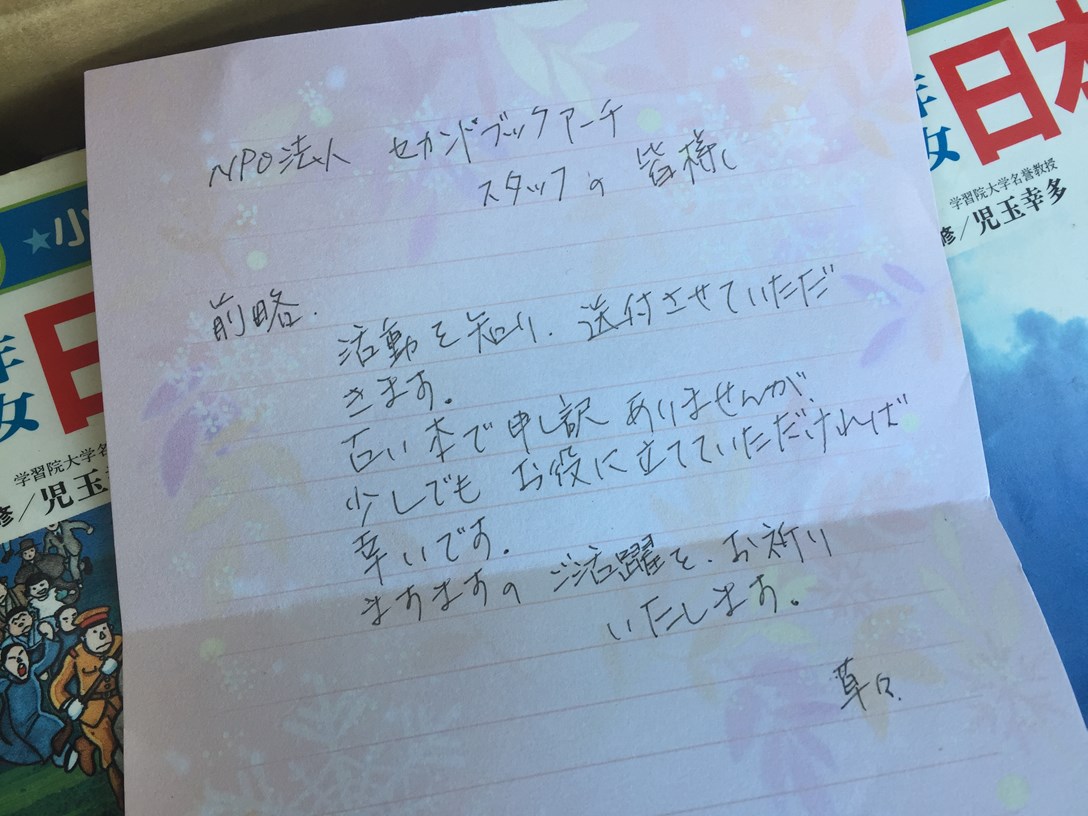 NPO法人 セカンドブックアーチ
スタッフの 皆様へ
前略.
活動を知り、送付させていただ
きます。
古い本で申し訳ありませんが、
少しでも お役に立てていただければ
幸いです。
ますますの ご活躍を、お祈り
いたします。
草々.
★小
年
女
日
学習院大学名
修/児玉
年
女
日本
学習院大学名誉教授
修/児玉幸多